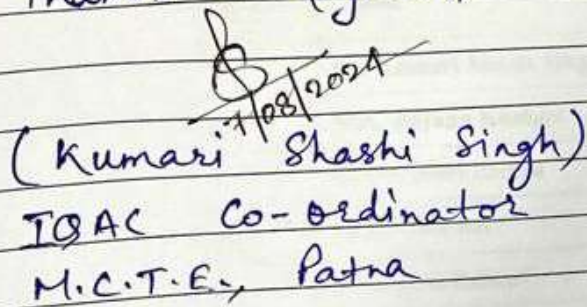 7/08/2024
(Kumari Shashi Singh)
IQAC Co-ordinator
M.C.T.E., Patna